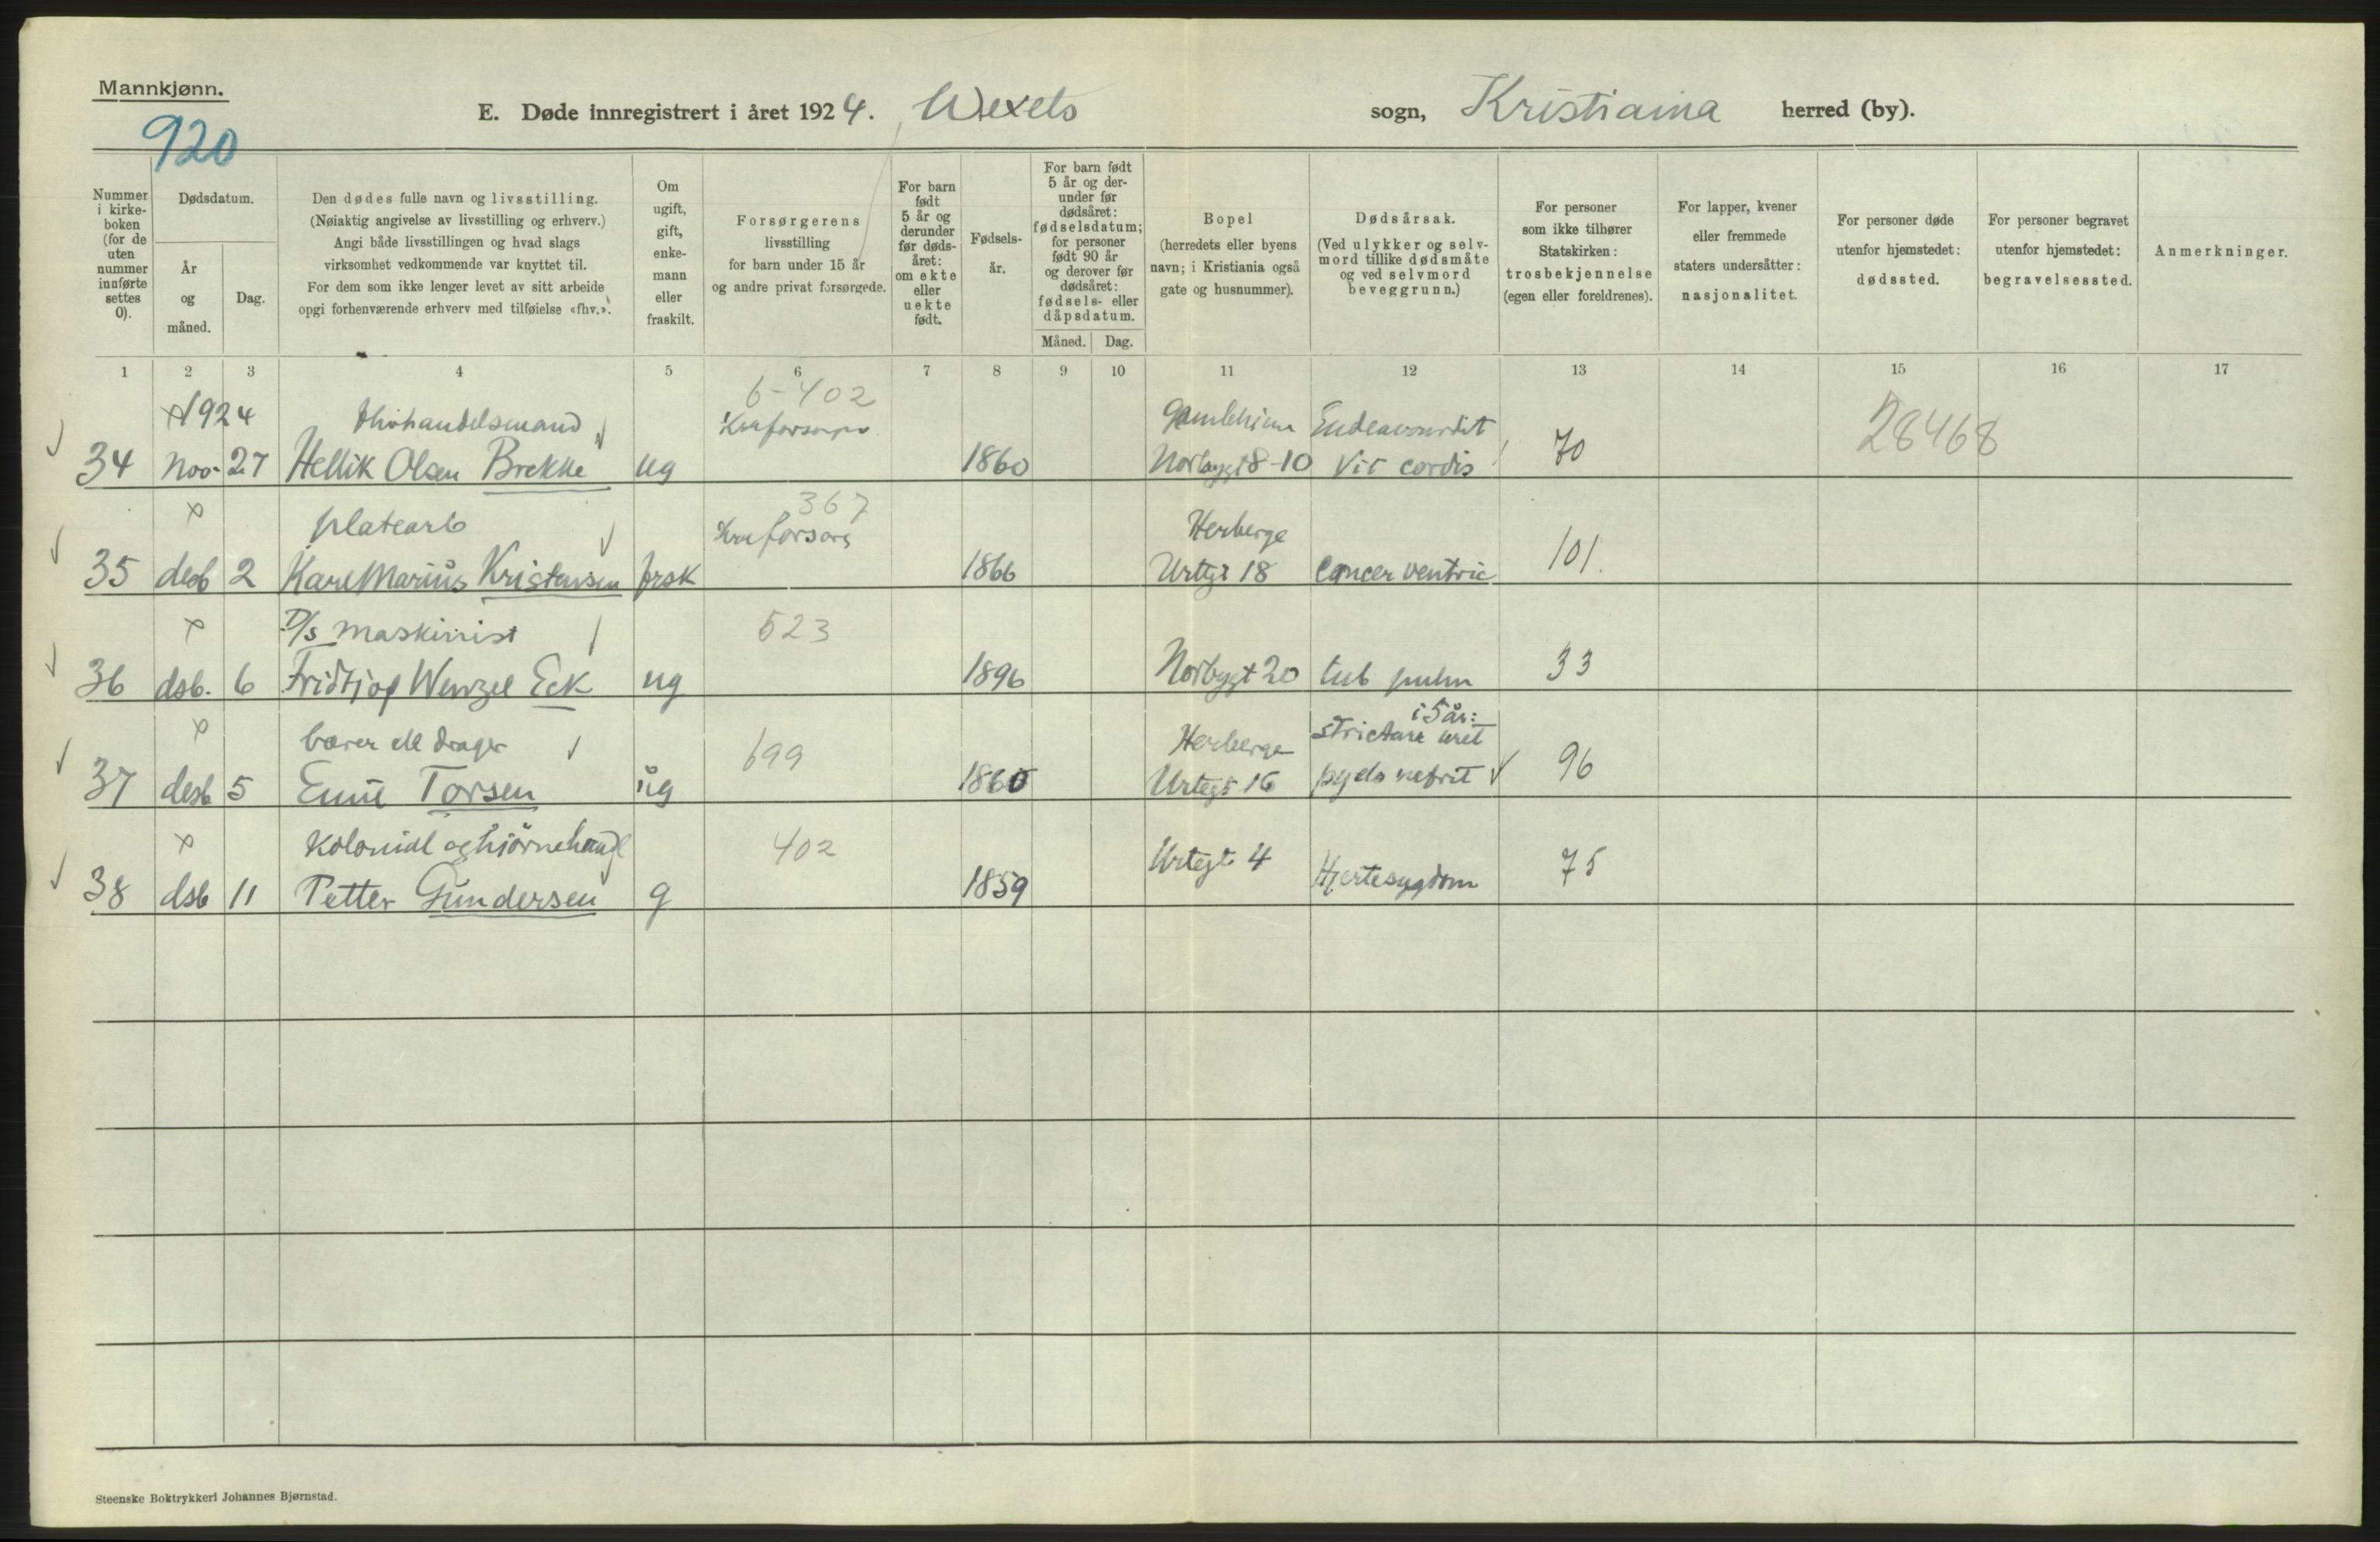 Mannkjønn.
E. Døde innregistrert i året 1924. Wexels sogn, Kristiania herred (by).
920
Nummer i kirkeboken (for de uten nummer innførte settes 0).
Dødsdatum.
År og måned.
Dag.
Den dødes fulle navn og livsstilling.
(Nøiaktig angivelse av livsstilling og erhverv.)
Angi både livsstillingen og hvad slags
virksomhet vedkommende var knyttet til.
For dem som ikke lenger levet av sitt arbeide
opgi forhenværende erhverv med tilføielse «fhv.».
Om ugift, gift, enkemann eller fraskilt.
Forsørgerens
livsstilling
for barn under 15 år
og andre privat forsørgede.
For barn født 5 år og derunder før dødsåret: om ekte eller uekte født.
Fødselsår.
For barn født 5 år og derunder før dødsåret: fødselsdatum; for personer født 90 år og derover før dødsåret: fødsels- eller dåpsdatum.
Måned.
Dag.
Bopel
(herredets eller byens
navn; i Kristiania også
gate og husnummer).
Dødsårsak.
(Ved ulykker og selvmord tillike dødsmåte og ved selvmord beveggrunn.)
For personer
som ikke tilhører
Statskirken:
trosbekjennelse
(egen eller foreldrenes).
For lapper, kvener
eller fremmede
staters undersåtter:
nasjonalitet.
For personer døde
utenfor hjemstedet:
dødssted.
For personer begravet
utenfor hjemstedet:
begravelsessted.
Anmerkninger.
1 2 3 4 5 6 7 8 9 10 11 12 13 14 15 16 17
1924 6-402 Gamlehjem 28468
34 Nov. 27 Hellik Olsen Brekke ug 1860 Norbygt 8-10 Vit cordis 70
platearb 367 Herberge
35 desb 2 Karl Marius Kristensen frsk 1866 Urtgt 18 Cancer ventric 101.
D/s maskinist 523
36 dsb. 6 Fridtjof Wenzel Eck ug 1896 Norbygt 20 tub pulm 33
bærer ell drager 699 Herberge i 5 år: strictura uret
37 desb 5 Emil Torsen ug 1860 Urtegt 16 pyelo nefrit 96
Kolonial og hjørnehandl 402
38 dsb 11 Petter Gundersen g 1859 Urtegt 4 Hjertesygdom 75
Steenske Boktrykkeri Johannes Bjørnstad.